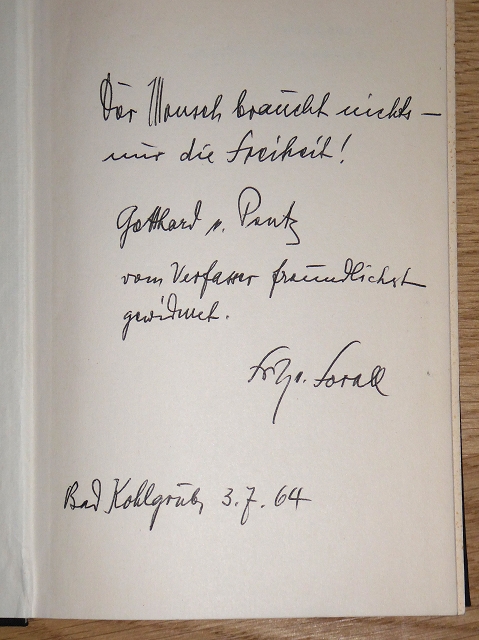 Der Mensch braucht nichts –
nur die Freiheit!
Gotthard v. Pantz
vom Verfasser freundlichst
gewidmet.
Forell
Bad Kohlgrub, 3.7.64